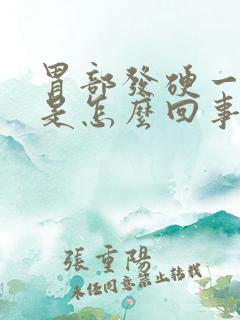 胃部發硬一
是怎麼回事
張重陽
未经同意禁止转载